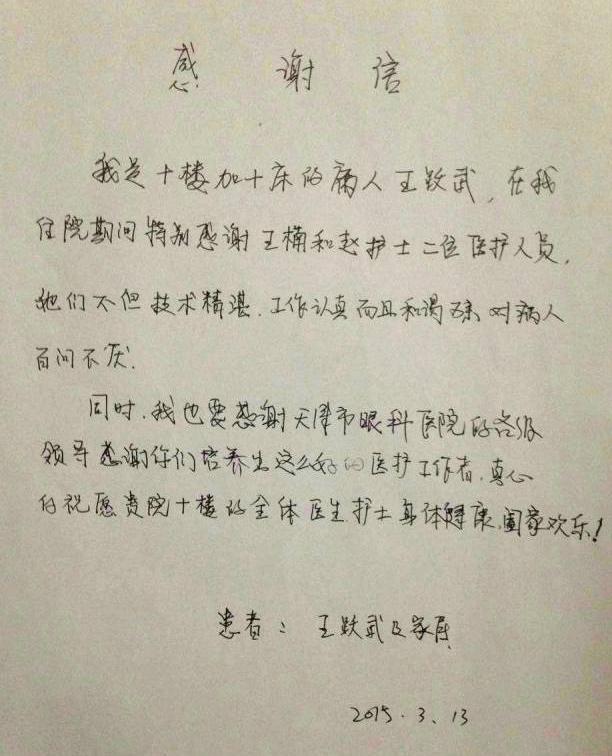 感谢信
我是十楼加十床的病人王跃武，在我
住院期间特别感谢王楠和赵护士二位医护人员，
她们不但技术精湛．工作认真而且和谒可亲对病人
百问不厌．
同时．我也要感谢天津市眼科医院的各级
领导感谢你们培养出这么好的医护工作者．真心
的祝愿贵院十楼的全体医生护士身体健康，阖家欢乐！
患者：王跃武及家属
2015.3.13